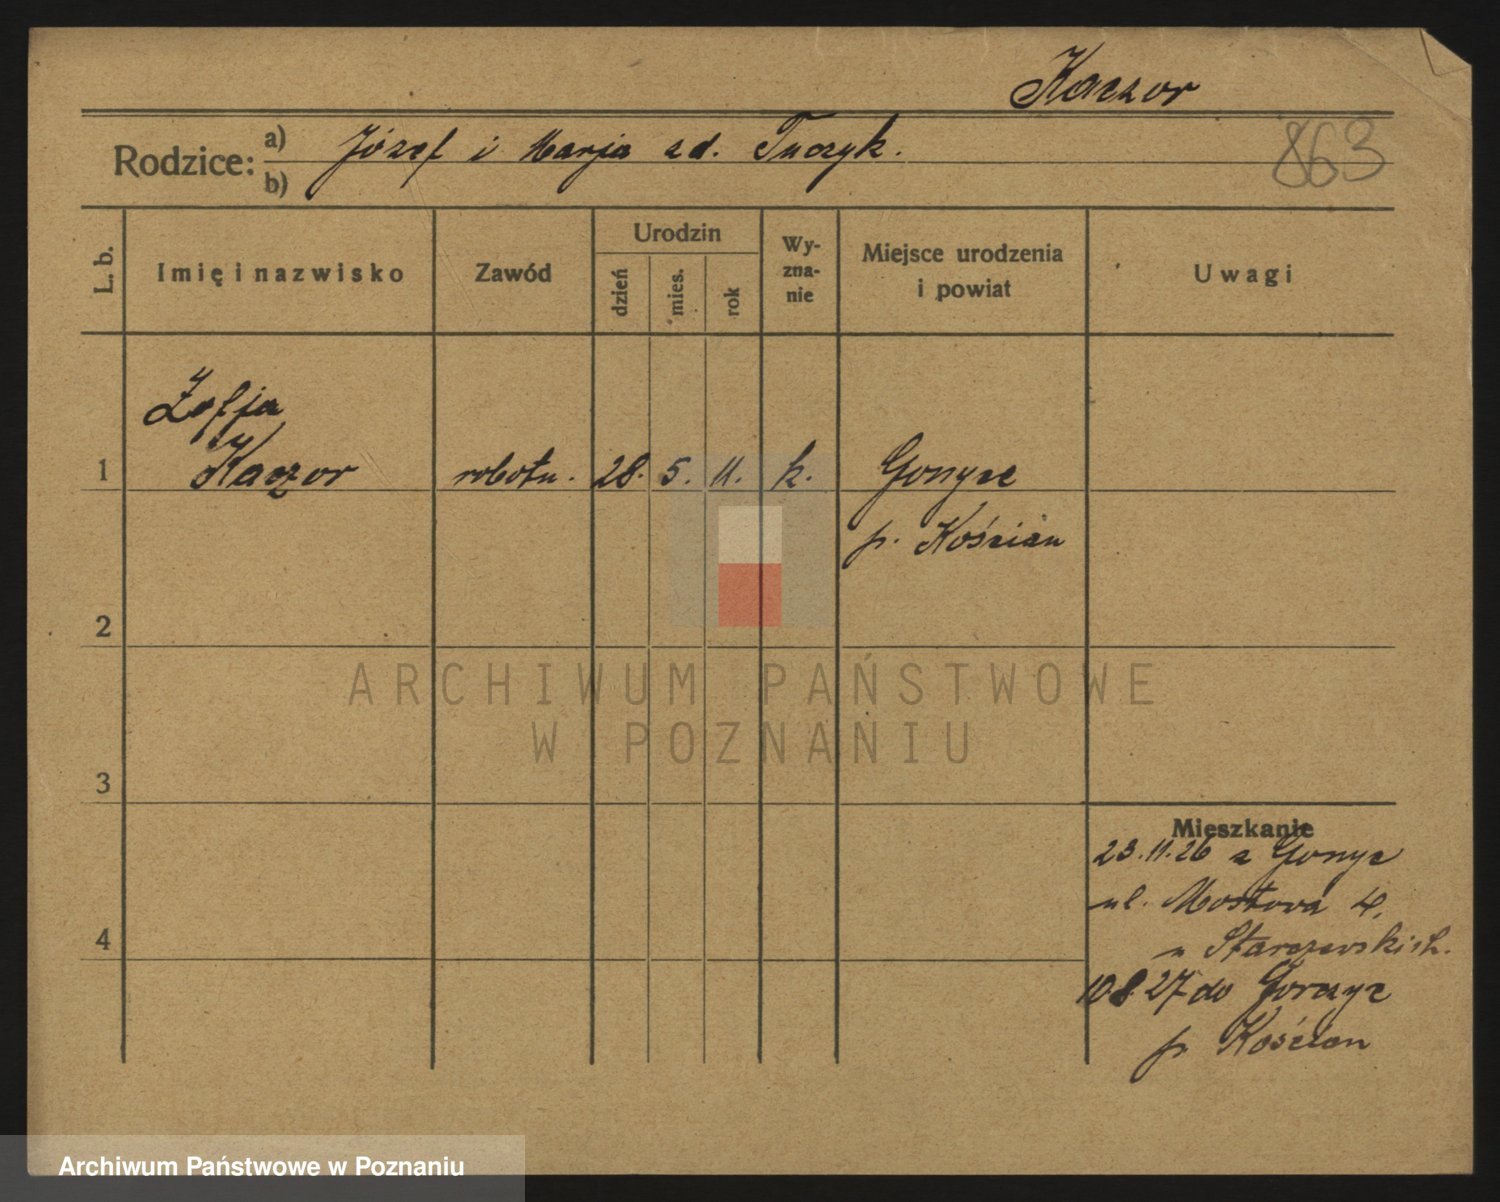 Kaczor
863
Rodzice: a) Józef i Marja zd. Tuczyk.
b)
L. b.
Imię i nazwisko
Zawód
Urodzin
dzień
mies.
rok
Wy-
zna-
nie
Miejsce urodzenia
i powiat
Uwagi
Zofja
1 Kaczor robotn. 28. 5. 11. k. Gonyce
p. Kościan
2
ARCHIWUM PAŃSTWOWE
W POZNANIU
3
Mieszkanie
23.11.26 z
ul. Mostowa 4,
4 u Starczewskich.
10.8.27 do
p. Kościan
Archiwum Państwowe w Poznaniu